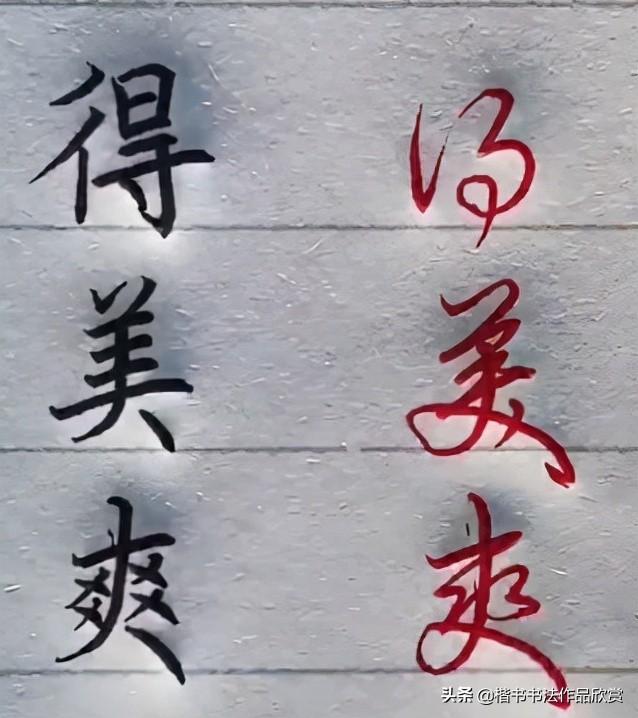 得 得
美 美
爽 爽
头条 @楷书书法作品欣赏